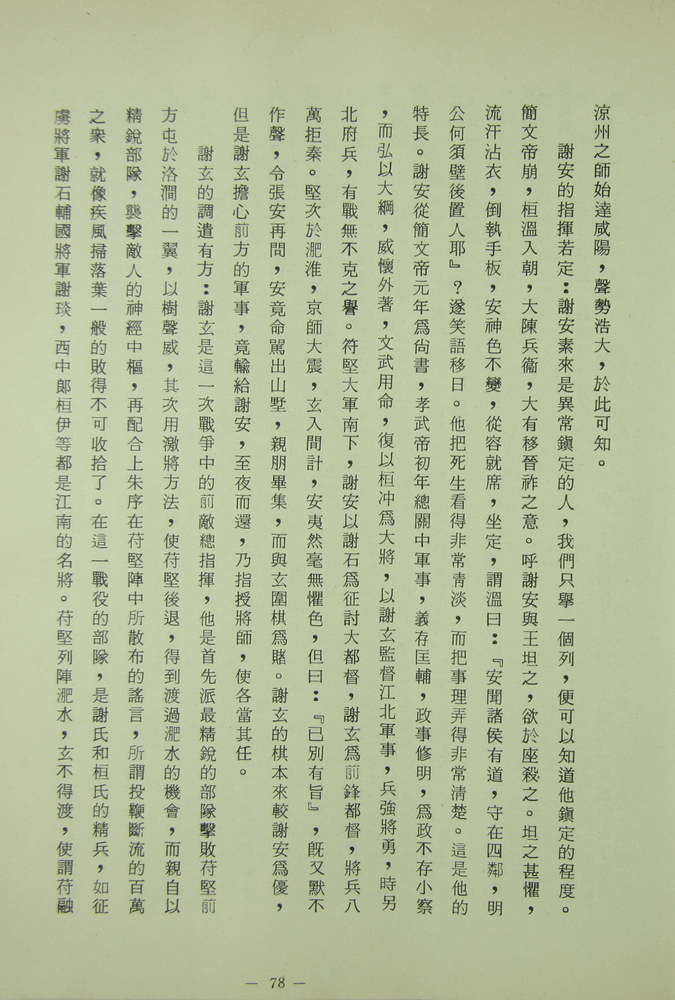 涼州之師始達咸陽，聲勢浩大，於此可知。
謝安的指揮若定：謝安素來是異常鎭定的人，我們只舉一個列，便可以知道他鎭定的程度。
簡文帝崩，桓溫入朝，大陳兵衞，大有移晉祚之意。呼謝安與王坦之，欲於座殺之。坦之甚懼，
流汗沾衣，倒執手板，安神色不變，從容就席，坐定，謂溫曰：『安聞諸侯有道，守在四鄰，明
公何須壁後置人耶』？遂笑語移日。他把死生看得非常靑淡，而把事理弄得非常淸楚。這是他的
特長。謝安從簡文帝元年爲尙書，孝武帝初年總關中軍事，義存匡輔，政事修明，爲政不存小察
，而弘以大綱，威懷外著，文武用命，復以桓冲爲大將，以謝玄監督江北軍事，兵強將勇，時另
北府兵，有戰無不克之譽。符堅大軍南下，謝安以謝石爲征討大都督，謝玄爲前鋒都督，將兵八
萬拒秦。堅次於淝淮，京師大震，玄入問計，安夷然毫無懼色，但曰：『已別有旨』，旣又默不
作聲，令張安再問，安竟命駕出山墅，親朋畢集，而與玄圍棋爲賭。謝玄的棋本來較謝安爲優，
但是謝玄擔心前方的軍事，竟輸給謝安，至夜而還，乃指授將師，使各當其任。
謝玄的調遣有方：謝玄是這一次戰爭中的前敵總指揮，他是首先派最精銳的部隊擊敗苻堅前
方屯於洛澗的一翼，以樹聲威，其次用激將方法，使苻堅後退，得到渡過淝水的機會，而親自以
精銳部隊，襲擊敵人的神經中樞，再配合上朱序在苻堅陣中所散布的謠言，所謂投鞭斷流的百萬
之衆，就像疾風掃落葉一般的敗得不可收拾了。在這一戰役的部隊，是謝氏和桓氏的精兵，如征
虜將軍謝石輔國將軍謝琰，西中郞桓伊等都是江南的名將。苻堅列陣淝水，玄不得渡，使謂苻融
— 78 —